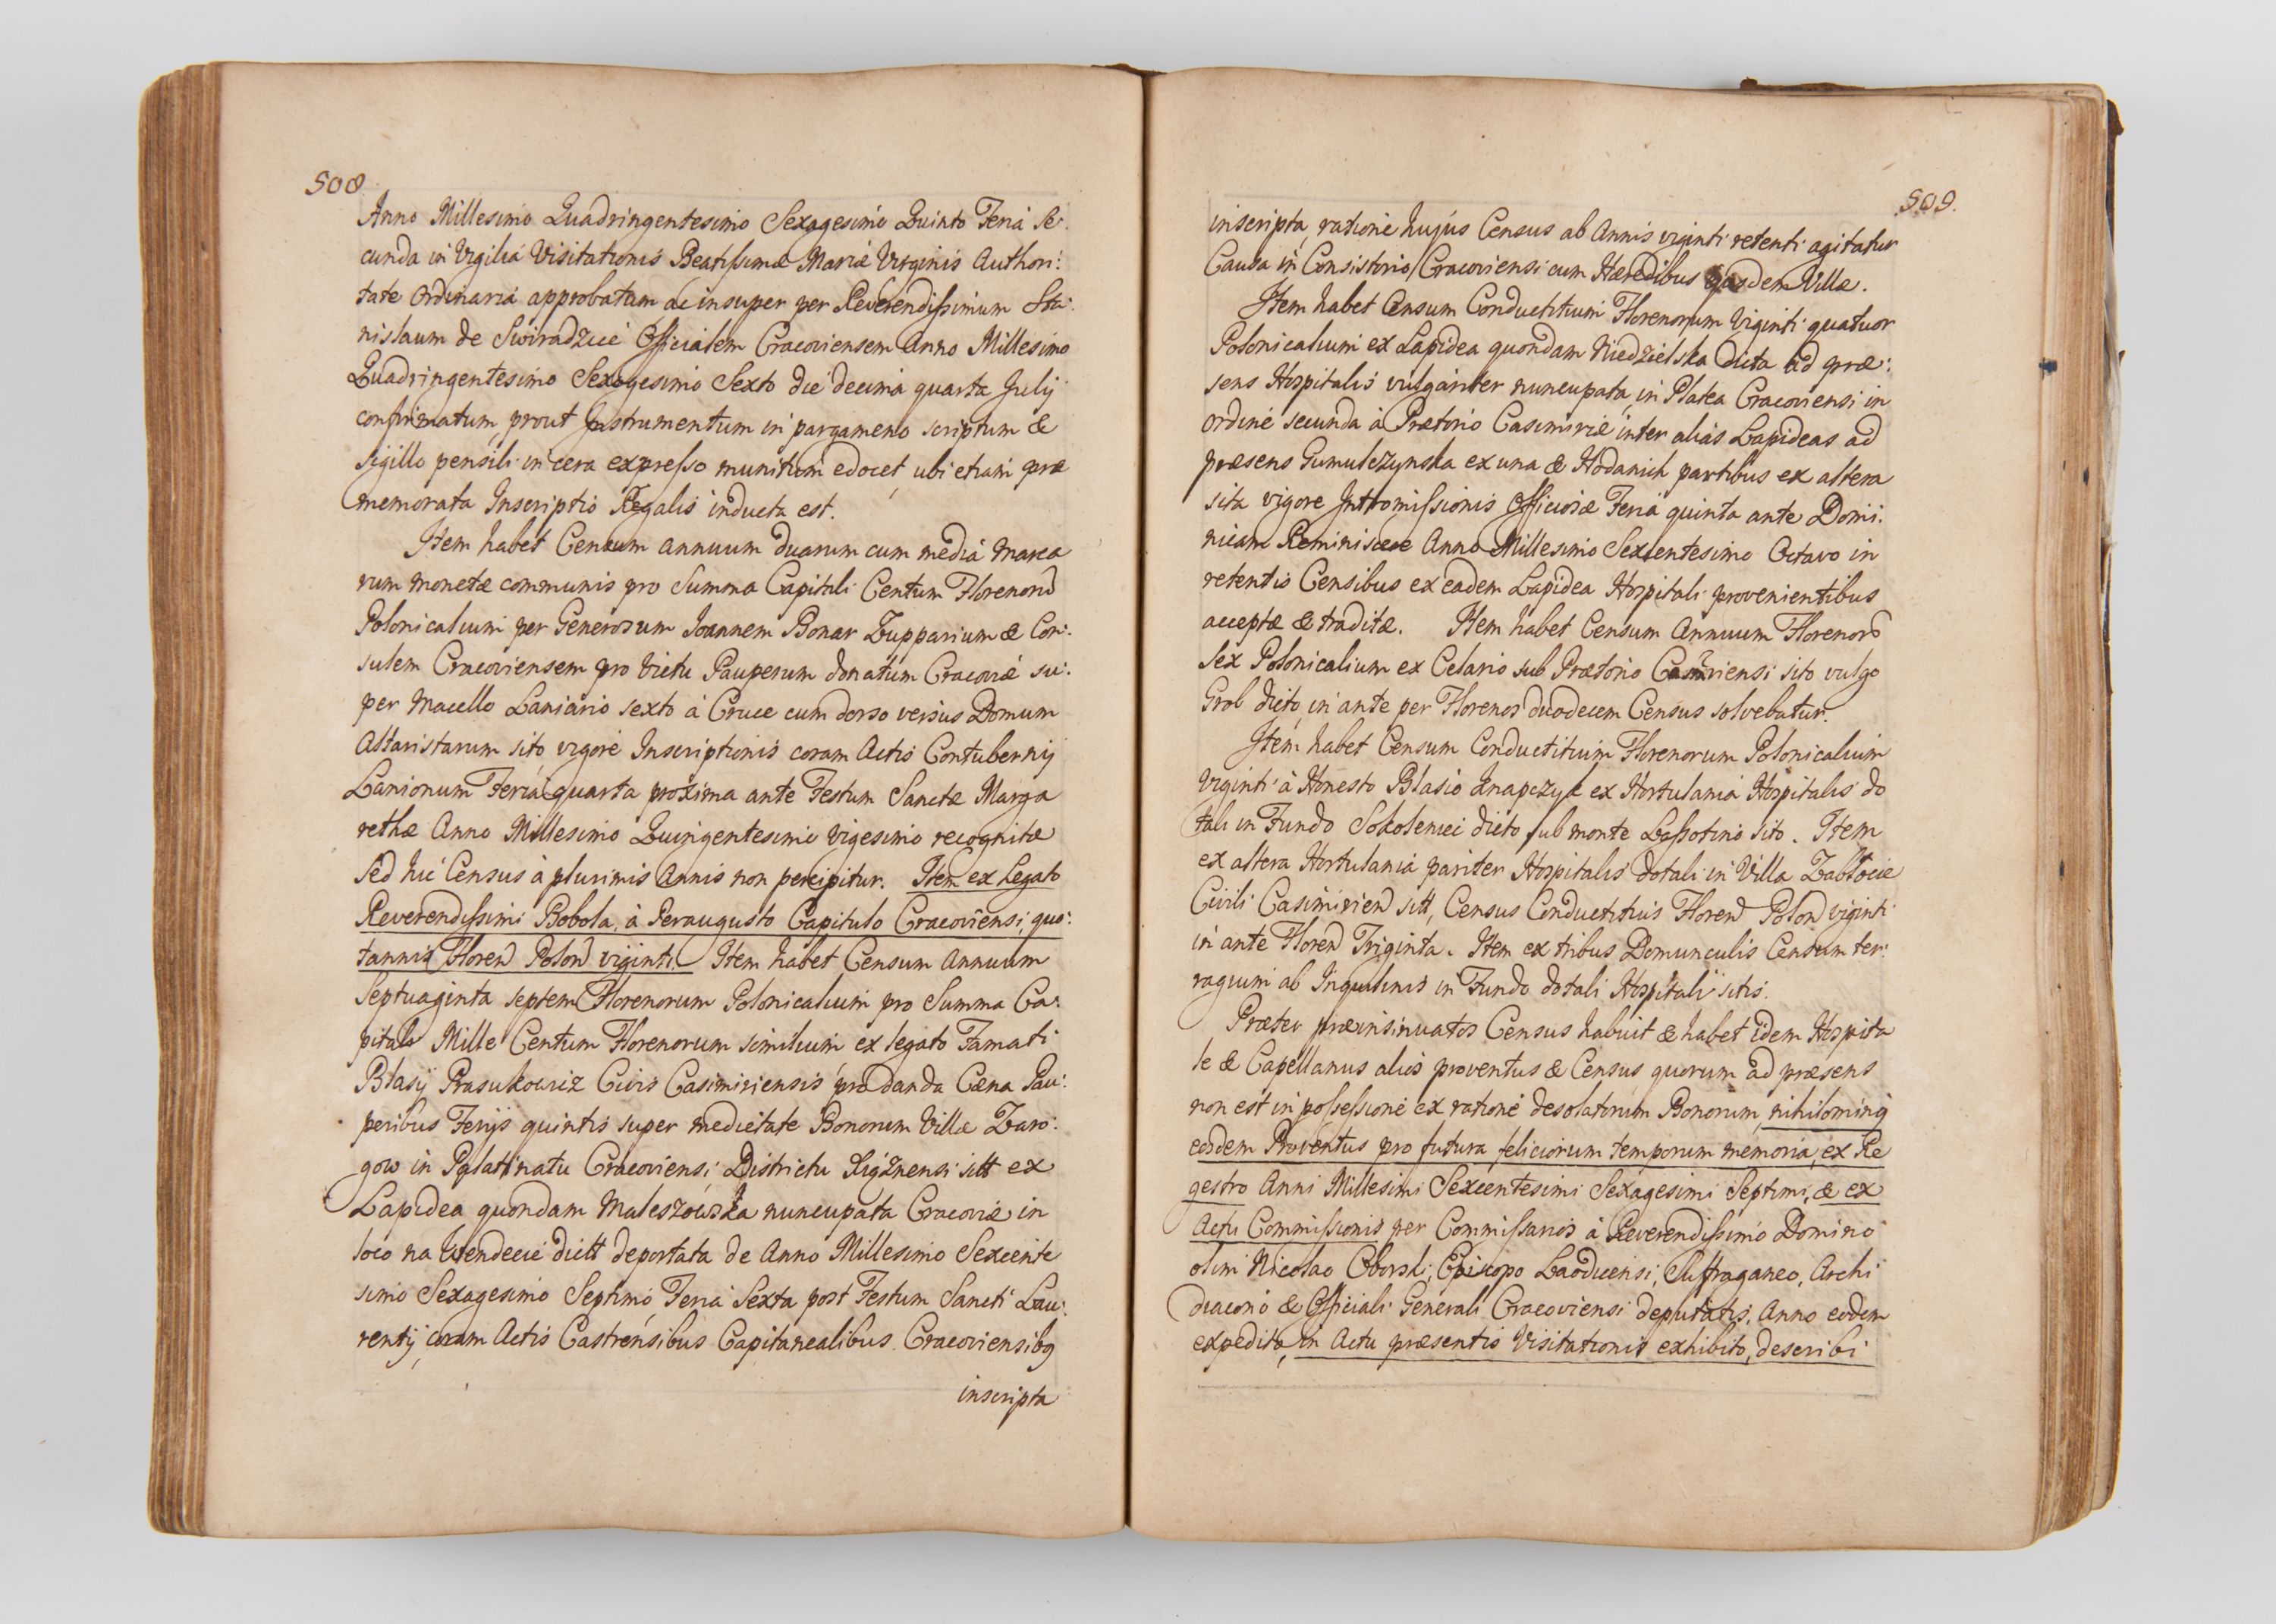 508
Anno Millesimo Quadringentesimo Sexagesimo Quinto Feria se:
cunda in Vigilia Visitationis Beatissimæ Mariæ Virginis Authori:
tate Ordinaria approbatum ac insuper per Reverendissimum Sta:
nislaum de Swiradzice Officialem Cracoviensem Anno Millesimo
Quadringentesimo Sexagesimo Sexto die decima quarta Julij
confirmatum, prout Instrumentum in pargameno scriptum &
sigillo pensili in cera expresso munitum edocet, ubi etiam præ
memorata Inscriptio Regalis inducta est.
Item habet Censum annuum duarum cum media Marca
rum monetæ communis pro Summa Capitali Centum Florenorũ
Polonicalium per Generosum Joannem Bonar Zupparium & Con:
sulem Cracoviensem pro Victu Pauperum donatum Cracoviæ su:
per Macello Laniario sexto à Cruce cum dorso versus Domum
Altaristarum sito, vigore Inscriptionis coram Actis Contubernij
Lanionum Feria quarta proxima ante Festum Sanctæ Marga
rethæ Anno Millesimo Quingentesimo Vigesimo recognitæ
sed hic Census à plurimis Annis non percipitur. Item ex Legato
Reverendissimi Bobola, à Peraugusto Capitulo Cracoviensi, quo:
tannis Floreñ Poloñ viginti. Item habet Censum Annuum
Septuaginta septem Florenorum Polonicalium pro Summa Ca:
pitali Mille Centum Florenorum similium ex legato Famati
Blasij Prasukowiz Civis Casimiriensis pro danda Cæna Pau:
peribus Ferijs quintis super medietate Bonorum Villæ Zaro:
gow in Palatinatu Cracoviensi, Districtu Xiążnensi sitt ex
Lapidea quondam Maleszowska nuncupata Cracoviæ in
loco na Wendecie dictt deportata de Anno Millesimo Sexcente
simo Sexagesimo Septimo, Feria Sexta post Festum Sancti Lau:
rentij, coram Actis Castrensibus Capitanealibus Cracoviensibq
inscripta
509.
inscripta, ratione hujus Census ab Annis viginti retenti agitatur
Causa in Consistorio Cracoviensi cum Hæredibus ejusdem Villæ.
Item habet Censum Conductitium Florenorum Viginti quatuor
Polonicalium ex Lapidea quondam Niedzielska dicta ad præ:
sens Hospitalis vulgariter nuncupata, in Platea Cracoviensi in
ordine secunda à Prætorio Casimiriæ inter alias Lapideas ad
præsens Gumulczynska ex una & Hodanich partibus ex altera
sita vigore Intromissionis Officiosæ Feria quinta ante Domi:
nicam Reminiscere Anno Millesimo Sexcentesimo Octavo in
retentis Censibus ex eadem Lapidea Hospitali provenientibus
acceptæ & traditæ. Item habet Censum Annuum Florenorũ
sex Polonicalium ex Celario sub Prætorio Casimiriensi sito vulgo
Grob dicto, in ante per Florenos duodecem Census solvebatur.
Item habet Censum Conductitium Florenorum Polonicalium
Viginti à Honesto Blasio Knapczyk ex Hortulania Hospitalis do
tali in Fundo Sokolenici dicto, sub monte Lassotino sito. Item
ex altera Hortulania pariter Hospitalis dotali in Villa Zabłocie
Civili Casimirieñ sitt, Census Conductitius Floreñ Poloñ viginti
in ante Floreñ Triginta. Item ex tribus Domunculis Censum ter:
ragium ab Inquilinis in Fundo dotali Hospitali sitis.
Præter præinsinuatos Census habuit & habet idem Hospita
le & Capellanus alios proventus & Census quorum ad præsens
non est in possessione ex ratione desolatorum Bonorum, nihilominq
eosdem Proventus pro futura feliciorum temporum memoria, ex Re
gestro Anni Millesimi Sexcentesimi Sexagesimi Septimi, & ex
Actu Commissionis per Commissarios à Reverendissimo Domino
olim Nicolao Oborski, Episcopo Laodicensi, Suffraganeo, Archi
diacono & Officiali Generali Cracoviensi deputatis, Anno eodem
expedito, in Actu præsentis Visitationis exhibito, describi